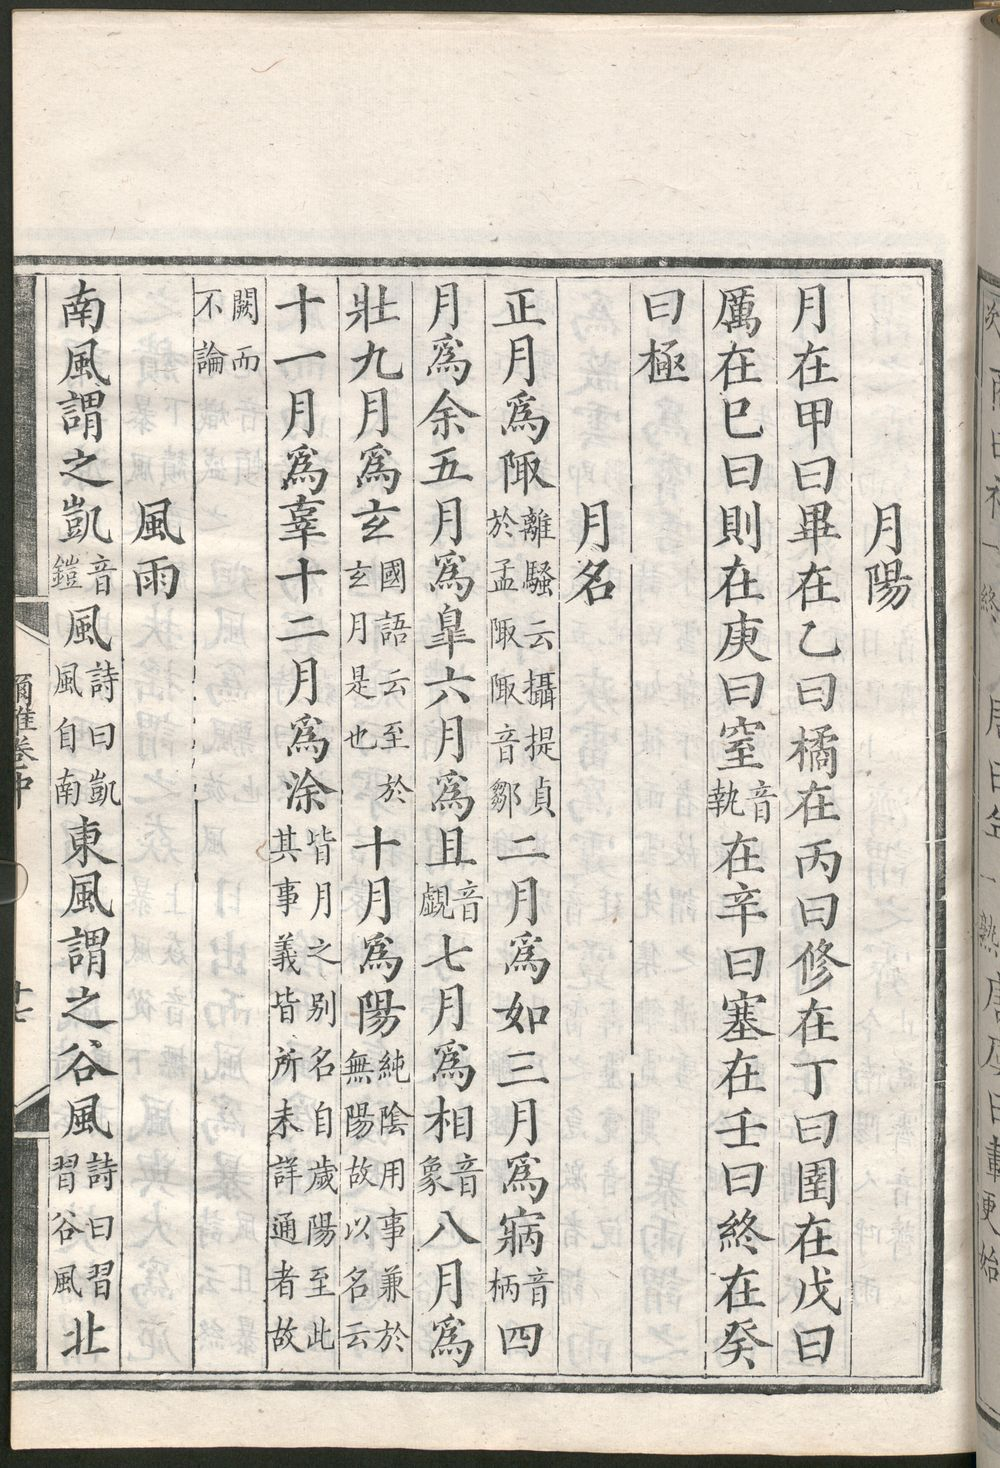 月陽
月在甲曰畢在乙曰橘在丙曰修在丁曰圉在戊曰
厲在巳曰則在庚曰窒音執在辛曰塞在壬曰終在癸
曰極
月名
正月爲陬離騷云攝提貞於孟陬陬音鄒二月爲如三月爲寎音柄四
月爲余五月爲皐六月爲且音覰七月爲相音象八月爲
壯九月爲玄國語云至於玄月是也十月爲陽純陰用事兼於無陽故以名云
十一月爲辜十二月爲涂皆月之別名自歲陽至此其事義皆所未詳通者故
闕而不論
風雨
南風謂之凱音鎧風詩曰凱風自南東風謂之谷風詩曰習習谷風北
爾雅卷中
十七